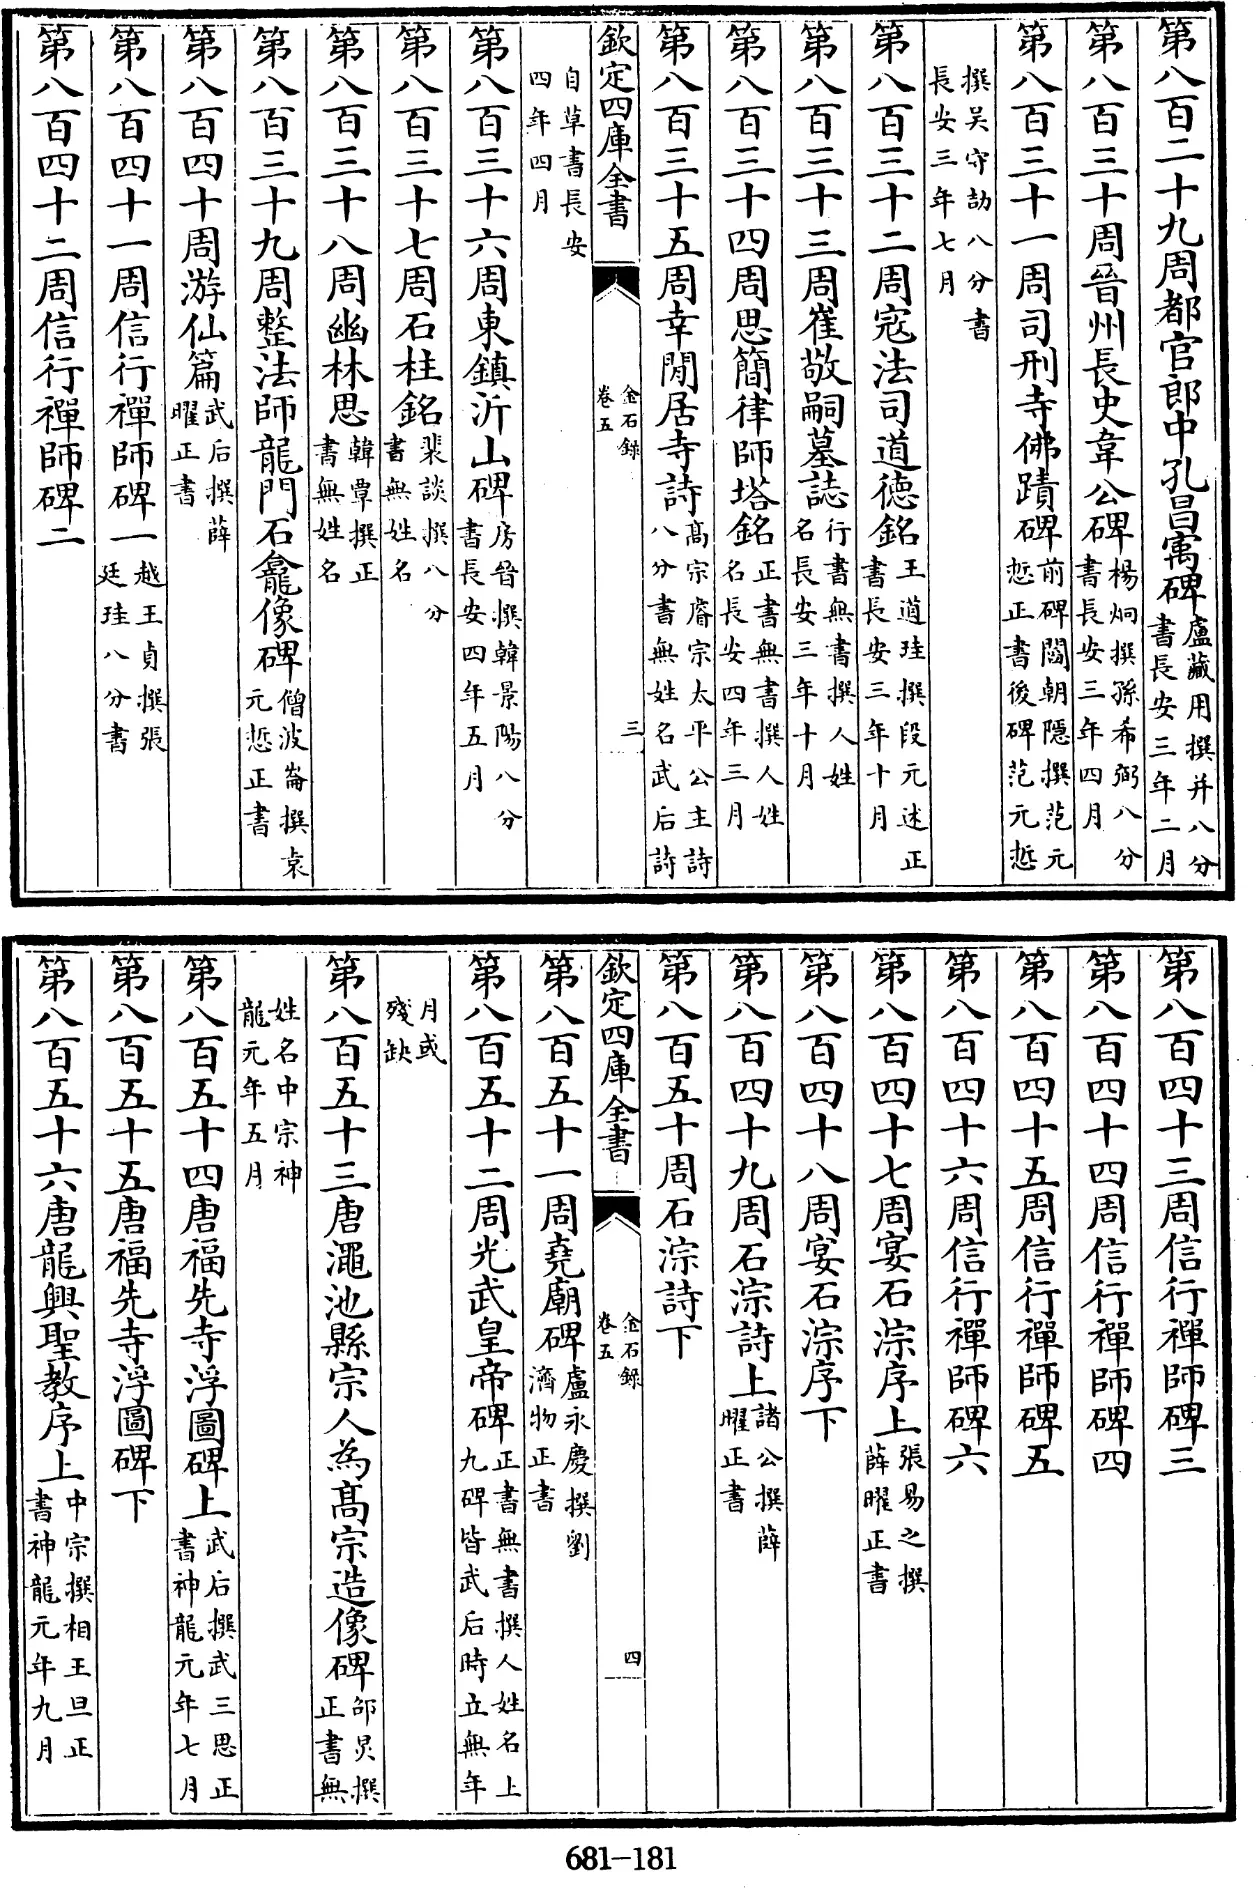 第八百二十九周都官郎中孔昌寓碑盧藏用撰并八分書長安三年二月
第八百三十周晉州長史韋公碑楊炯撰孫希弼八分書長安三年四月
第八百三十一周司刑寺佛蹟碑前碑閻朝隱撰范元悊正書後碑范元悊
撰吴守劼八分書長安三年七月
第八百三十二周寇法司道德銘王道珪撰段元述正書長安三年十月
第八百三十三周崔敬嗣墓誌行書無書撰人姓名長安三年十月
第八百三十四周思簡律師塔銘正書無書撰人姓名長安四年三月
第八百三十五周幸閒居寺詩高宗睿宗太平公主詩八分書無姓名武后詩
欽定四庫全書 金石錄卷五 三
自草書長安四年四月
第八百三十六周東鎮沂山碑房晉撰韓景陽八分書長安四年五月
第八百三十七周石柱銘裴談撰八分書無姓名
第八百三十八周幽林思韓覃撰正書無姓名
第八百三十九周整法師龍門石龕像碑僧波崙撰袁元悊正書
第八百四十周游仙篇武后撰薛曜正書
第八百四十一周信行禪師碑一越王貞撰張廷珪八分書
第八百四十二周信行禪師碑二
第八百四十三周信行禪師碑三
第八百四十四周信行禪師碑四
第八百四十五周信行禪師碑五
第八百四十六周信行禪師碑六
第八百四十七周宴石淙序上張易之撰薛曜正書
第八百四十八周宴石淙序下
第八百四十九周石淙詩上諸公撰薛曜正書
第八百五十周石淙詩下
欽定四庫全書 金石錄卷五 四
第八百五十一周堯廟碑盧永慶撰劉濟物正書
第八百五十二周光武皇帝碑正書無書撰人姓名上九碑皆武后時立無年
月或殘缺
第八百五十三唐澠池縣宗人為高宗造像碑邵炅撰正書無
姓名中宗神龍元年五月
第八百五十四唐福先寺浮圖碑上武后撰武三思正書神龍元年七月
第八百五十五唐福先寺浮圖碑下
第八百五十六唐龍興聖教序上中宗撰相王旦正書神龍元年九月
681-181